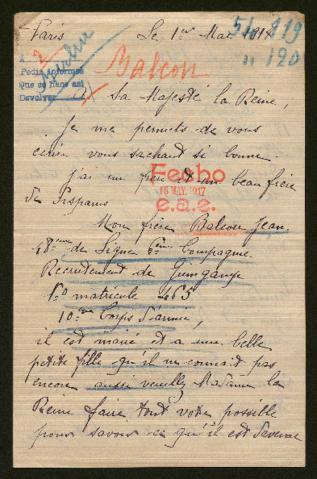 Paris Le, 1er Mai 1917
51 219
" 120
2
Berlin
Pedir informes
que se hace así
Devolver
Balcon
A Sa Majesté la Reine,
Je me permets de vous
écrire vous sachant si bonne.
j'ai un frère et un beau frère
de Disparus
Fecho
16 MAY. 1917
e.a.e.
Mon frère Balcon Jean,
48ème de Ligne 6ème Compagnie
Recrutement de Guingamp
No matricule 465
10ème Corps d'armée,
il est marié et a une belle
petite fille qu'il ne connait pas
encore aussi veuillez Madame la
Reine faire tout votre possible
pour savoir ce qu'il est devenu